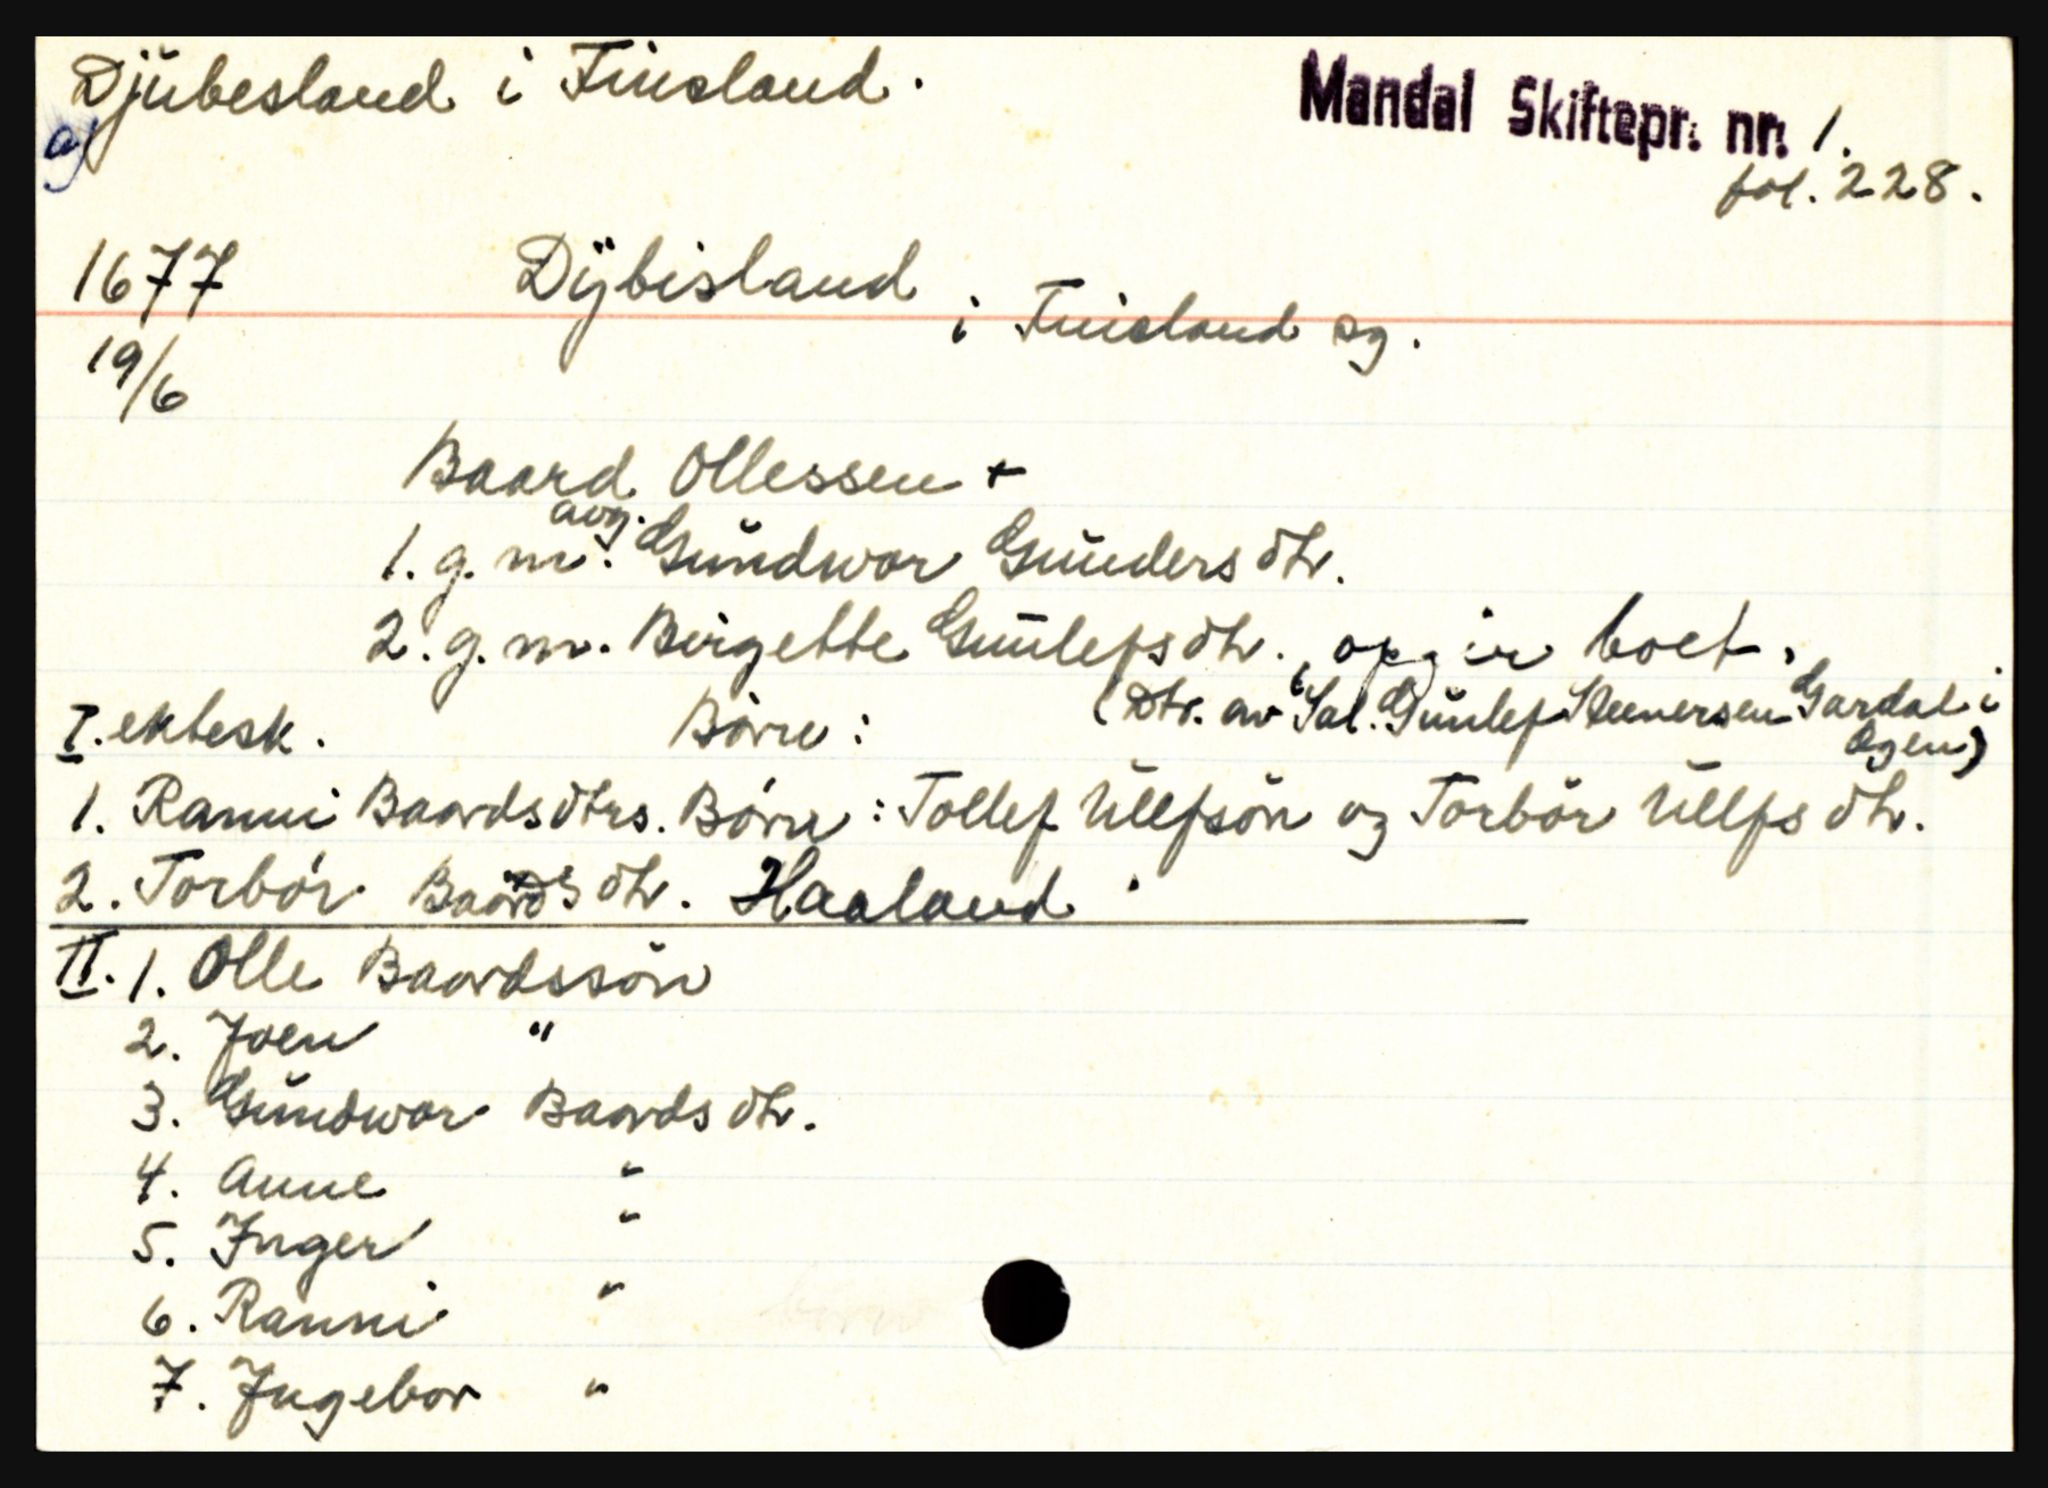 Djubesland i Finsland.
Mandal Skiftepr. nr. 1.
a)
fol. 228.
1677
Dÿbisland
i Finsland sg.
19/6
Baard Ollessen +
avg.
1. g. m. Gŭndwor Gŭnders dtr.
2. g. m. Birgette Gŭnlefs dtr., opgir boet.
(Dtr. av Sal. Gŭnlef Steenersen Gardal i
Øgen)
I. ektesk. Børn:
1. Ranni Baardsdtrs. Børn: Tollef Ŭllfsön og Torbör Ŭllfs dtr.
2. Torbör Baards dtr. Haaland.
II. 1. Olle Baardssön
2. Joen "
3. Gŭndwor Baards dtr.
4. Anne "
5. Inger "
6. Ranni "
7. Ingebor "